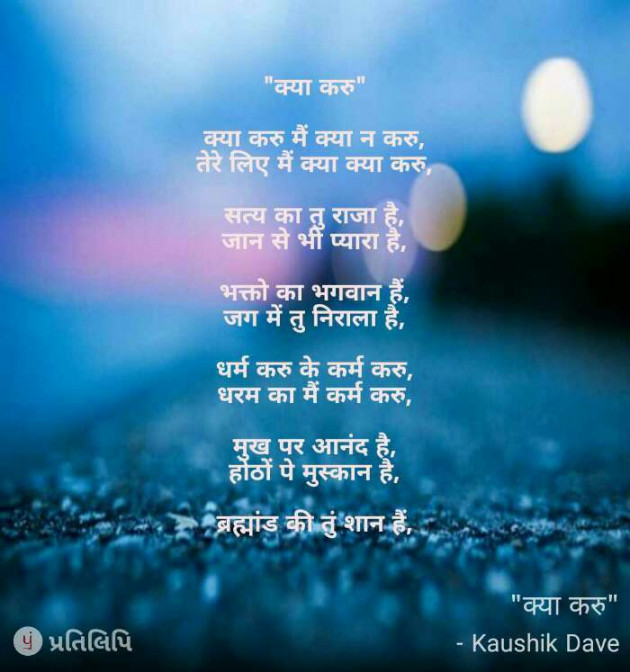 "क्या करु"
क्या करु मैं क्या न करु,
तेरे लिए मैं क्या क्या करु,
सत्य का तु राजा है,
जान से भी प्यारा है,
भक्तो का भगवान हैं,
जग में तु निराला है,
धर्म करु के कर्म करु,
धरम का मैं कर्म करु,
मुख पर आनंद है,
होठों पे मुस्कान है,
ब्रह्मांड की तुं शान हैं,
"क्या करु"
- Kaushik Dave
પ્રતિલિપિ